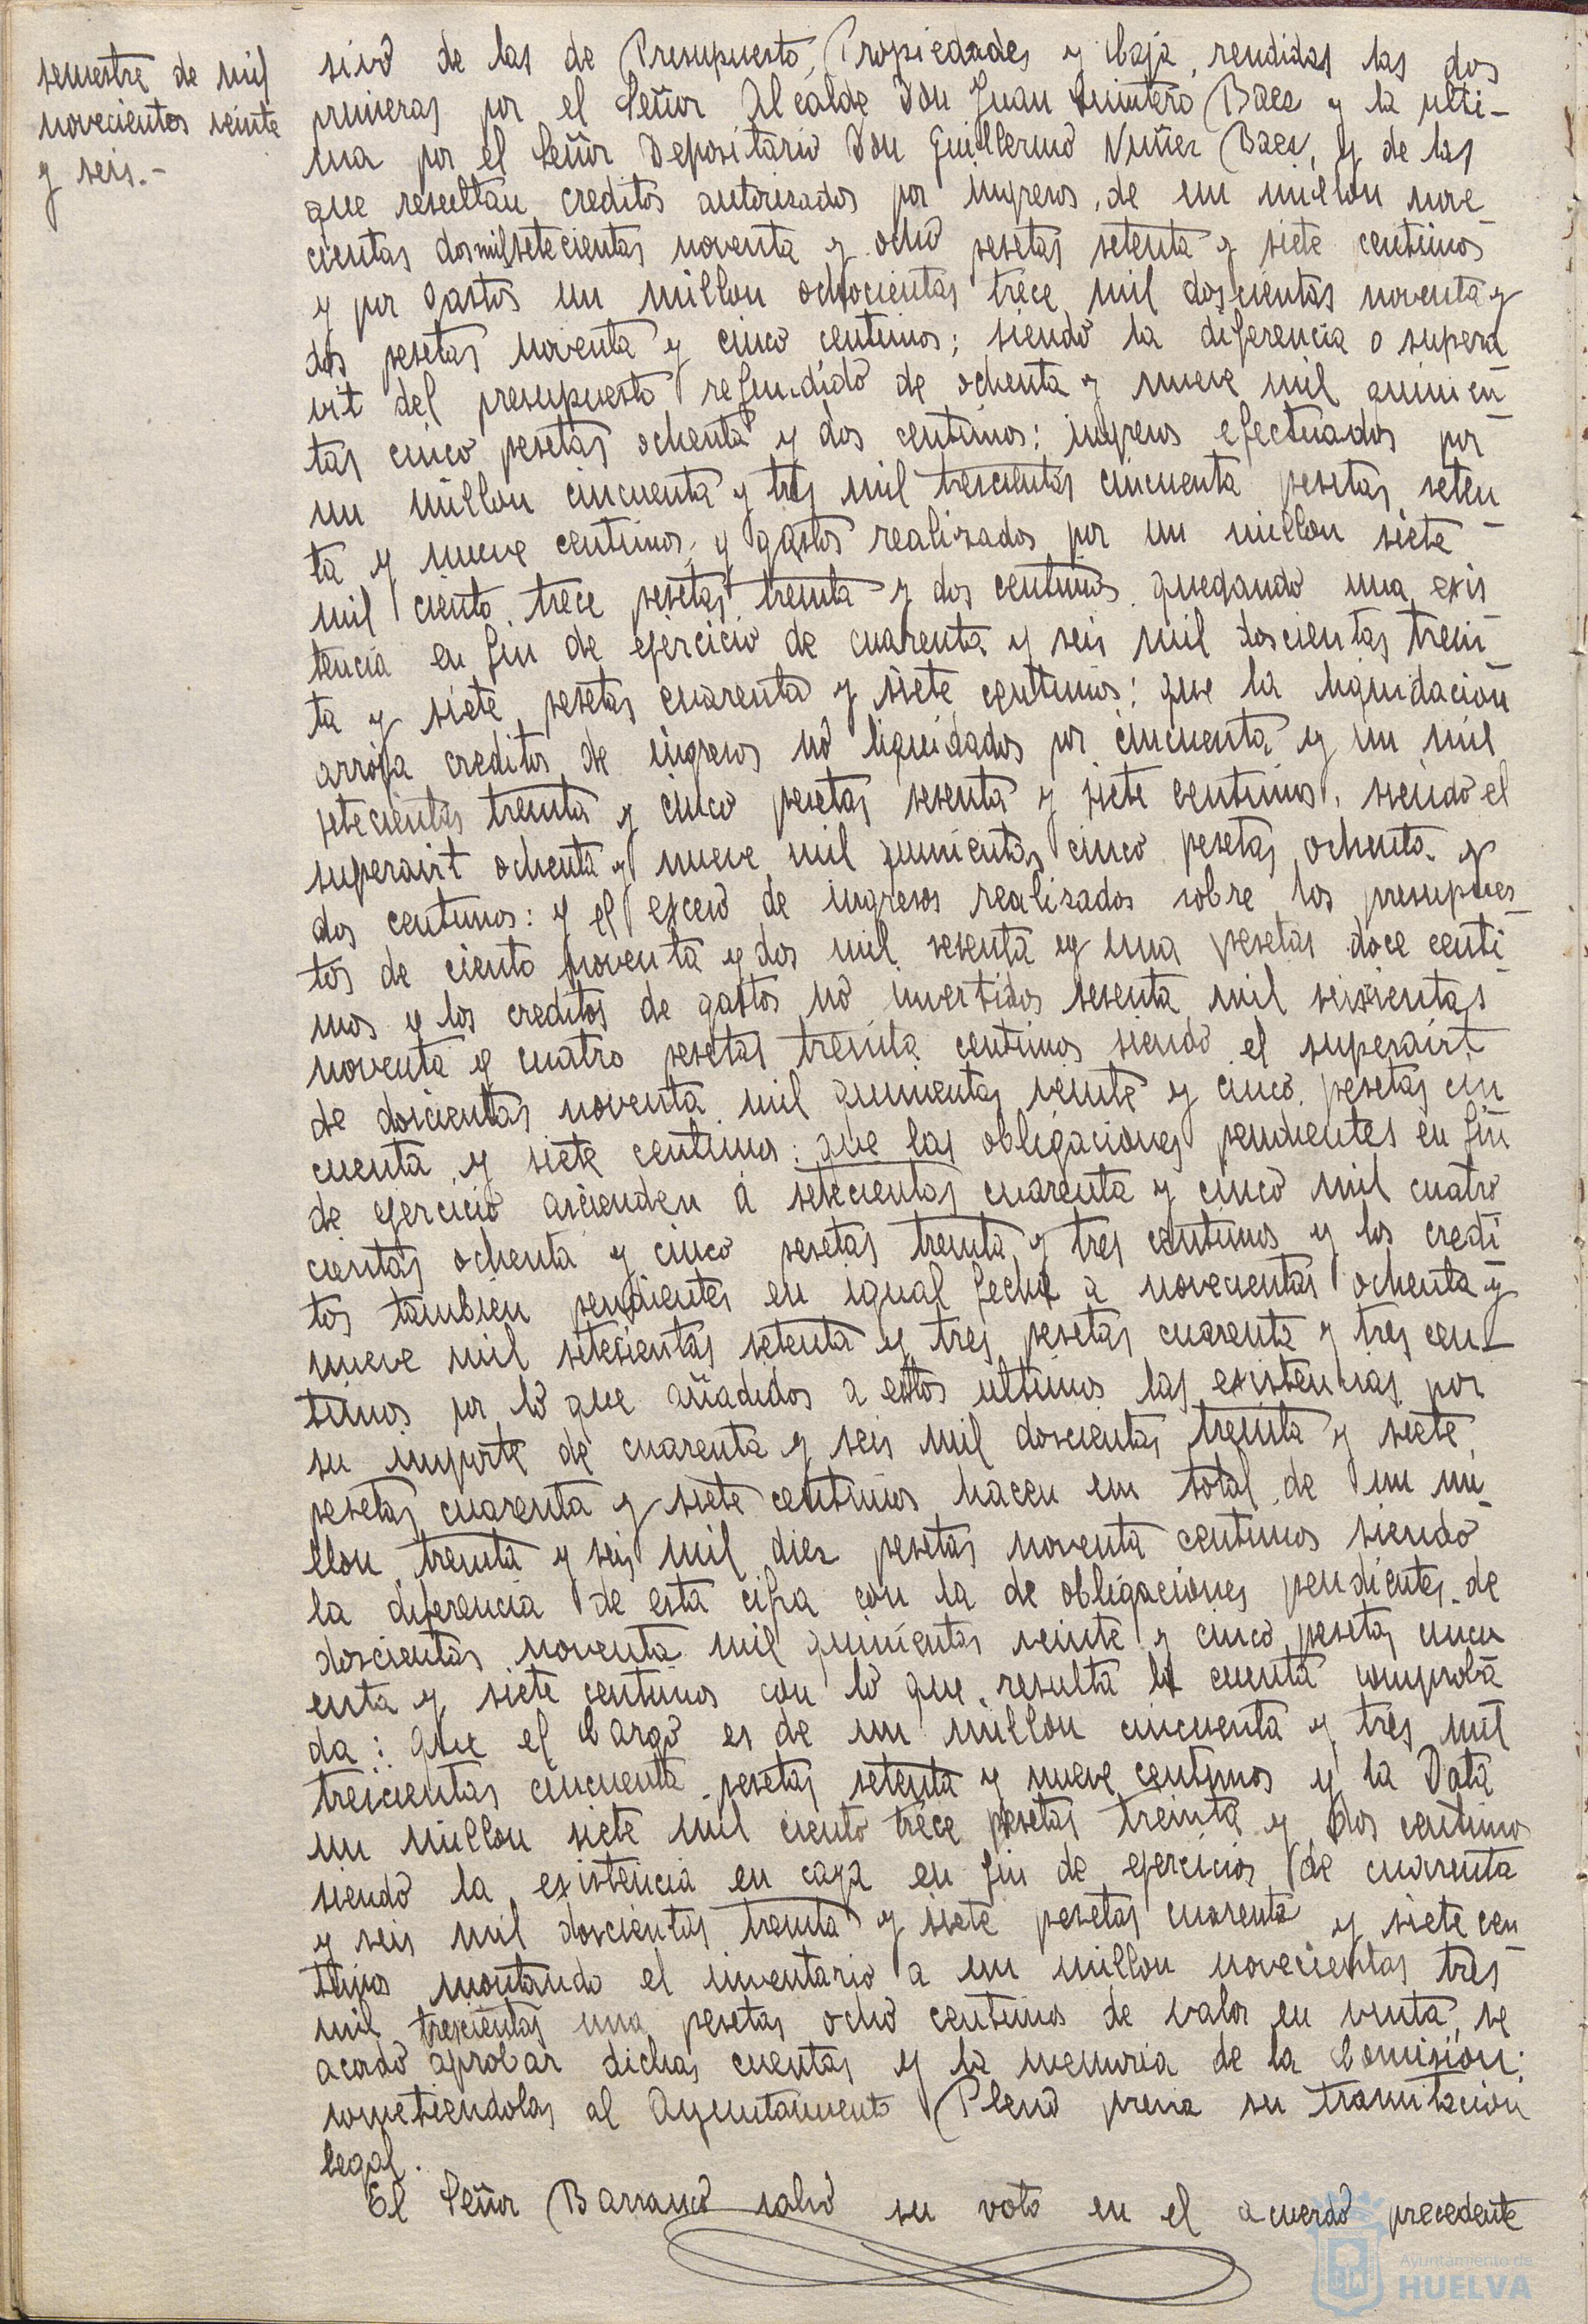 semestre de mil
novecientos veinte
y seis.-
sivo de las de Presupuesto, Propiedades y Caja, rendidas las dos
primeras por el Señor Alcalde Don Juan Quintero Baez y la ulti-
ma por el Señor Depositario Don Guillermo Nuñez Baez, y de las
que resultan creditos autorizados por ingresos, de un millon nove-
cientas dos mil setecientas noventa y ocho pesetas setenta y siete centimos
y por Gastos un millon ochocientas trece mil doscientas noventa y
dos pesetas noventa y cinco centimos; siendo la diferencia o supera-
vit del presupuesto refundido de ochenta y nueve mil quinien-
tas cinco pesetas ochenta y dos centimos: ingresos efectuados por
un millon cincuenta y tres mil trescientas cincuenta pesetas seten-
ta y nueve centimos, y gastos realizados por un millon siete
mil ciento trece pesetas treinta y dos centimos quedando una exis-
tencia en fin de ejercicio de cuarenta y seis mil doscientas trein-
ta y siete pesetas cuarenta y siete centimos: que la liquidacion
arroja creditos de ingresos no liquidados por cincuenta y un mil
setecientas treinta y cinco pesetas sesenta y siete centimos, siendo el
superavit ochenta y nueve mil quinientas cinco pesetas ochenta y
dos centimos: y el exceso de ingresos realizados sobre los presupues-
tos de ciento noventa y dos mil sesenta y una pesetas doce centi-
mos y los creditos de gastos no invertidos sesenta mil seiscientas
noventa y cuatro pesetas treinta centimos siendo el superavit
de doscientas noventa mil quinientas veinte y cinco pesetas cin-
cuenta y siete centimos: que las obligaciones pendientes en fin
de ejercicio ascienden a setecientas cuarenta y cinco mil cuatro
cientas ochenta y cinco pesetas treinta y tres centimos y los credi-
tos tambien pendientes en igual fecha a novecientas ochenta y
nueve mil setecientas setenta y tres pesetas cuarenta y tres cen-
timos por lo que añadidos a estos ultimos las existencias por
su importe de cuarenta y seis mil doscientas treinta y siete
pesetas cuarenta y siete centimos hacen un total de un mi-
llon treinta y seis mil diez pesetas noventa centimos siendo
la diferencia de esta cifra con la de obligaciones pendientes de
doscientas noventa mil quinientas veinte y cinco pesetas cincu
enta y siete centimos con lo que resulta la cuenta comproba-
da: que el Cargo es de un millon cincuenta y tres mil
trescientas cincuenta pesetas setenta y nueve centimos y la Data
un millon siete mil ciento trece pesetas treinta y dos centimos
siendo la existencia en caja en fin de ejercicios de cuarenta
y seis mil doscientas treinta y siete pesetas cuarenta y siete cen-
timos montando el inventario a un millon novecientas tres
mil trescientas una pesetas ocho centimos de valor en venta, se
acordo aprobar dichas cuentas y la memoria de la Comision;
sometiendolas al Ayuntamiento Pleno previa su tramitacion
legal.
El Señor Barranco salvo su voto en el acuerdo precedente
Ayuntamiento de
HUELVA